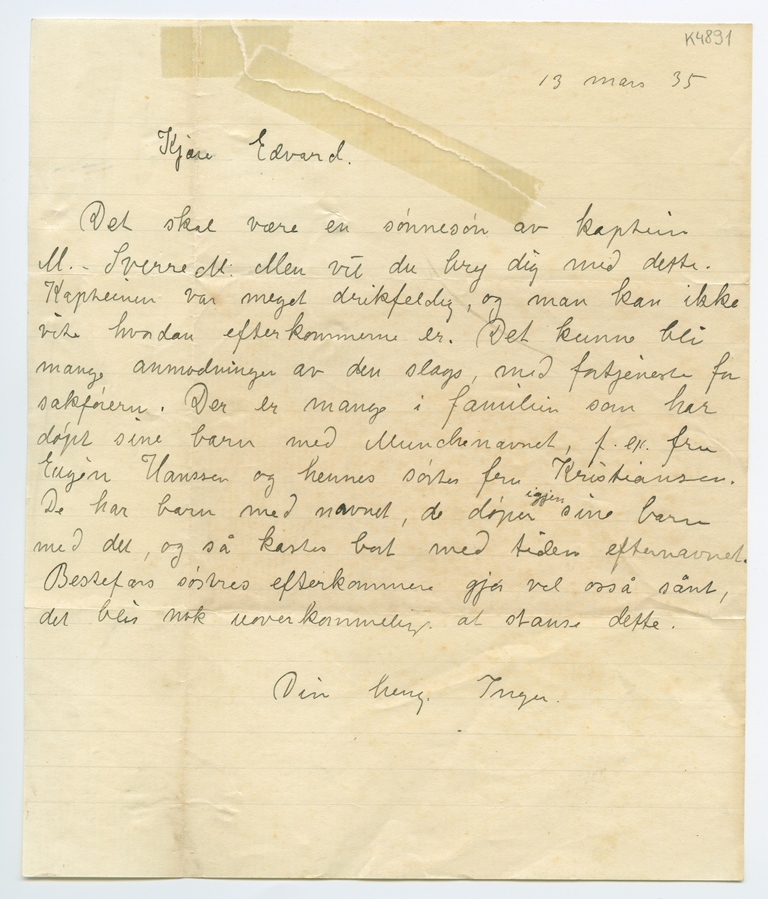 K4891
13 mars 35
Kjære Edvard.
Det skal være en sønnesøn av kaptein
M. - Sverre M. Men vil du bry dig med dette.
Kapteinen var meget drikfeldig, og man kan ikke
vite hvordan efterkommerne er. Det kunne bli
mange anmodninger av den slags, med fortjeneste for
sakførern. Der er mange i familien som har
døpt sine barn med Munchnavnet, f. ex. fru
Eugén Hanssen og hennes søster fru Kristiansen.
De har barn med navnet, de døper igjen sine barn
med det, og så kastes bort med tiden efternavnet.
Bestefars søstres efterkommere gjør vel også sånt,
det blir nok uoverkommelig at stanse dette.
Din heng. Inger.